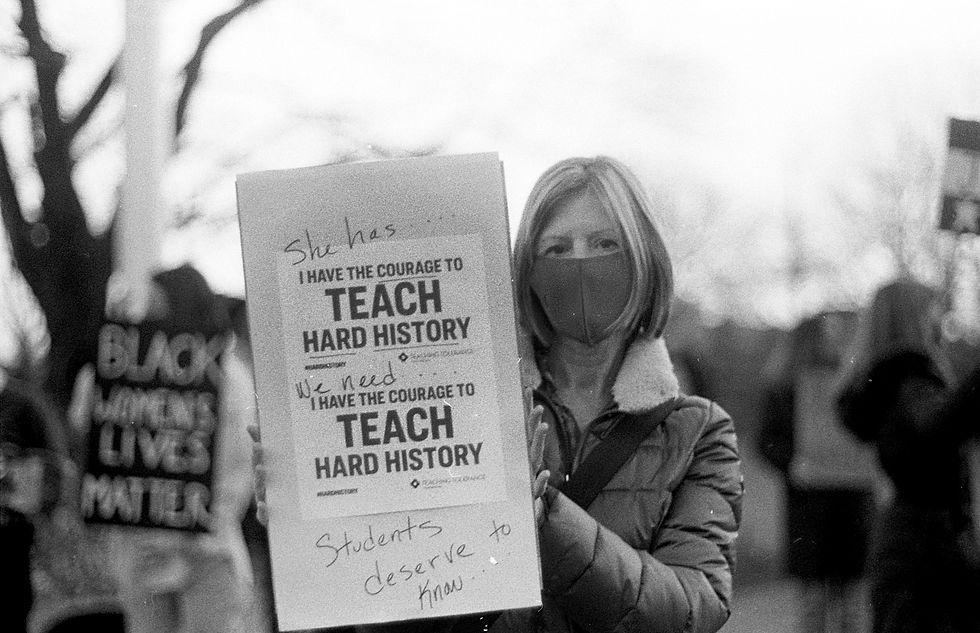 She has....
I HAVE THE COURAGE TO
TEACH
HARD HISTORY
TEACHING TOLERANCE
#HARDHISTORY
We need....
I HAVE THE COURAGE TO
TEACH
HARD HISTORY
TEACHING TOLERANCE
#HARDHISTORY
Students
deserve to
know...
BLACK
WOMEN'S
LIVES
MATTER